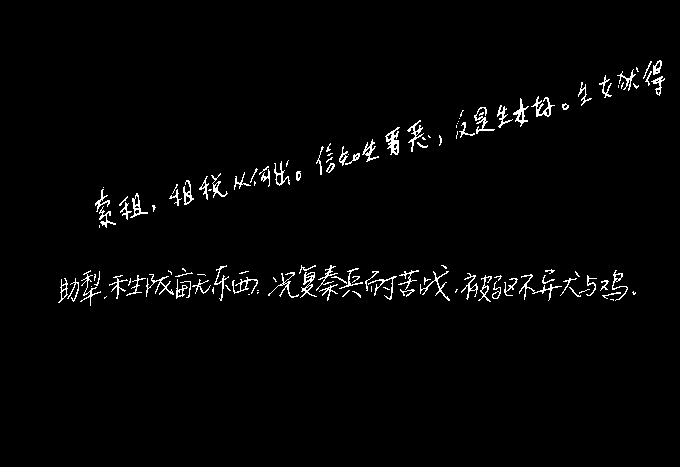 索租，租税从何出。信知生男恶，反是生女好。生女犹得
助犁，禾生陇亩无东西。况复秦兵耐苦战，被驱不异犬与鸡。